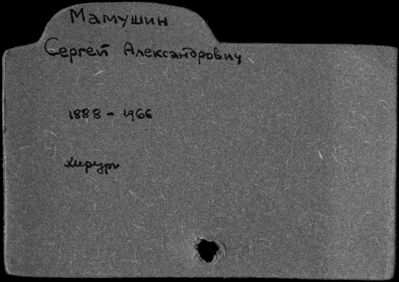 Мамушин
Сергей Александрович
1888 - 1966
хирург